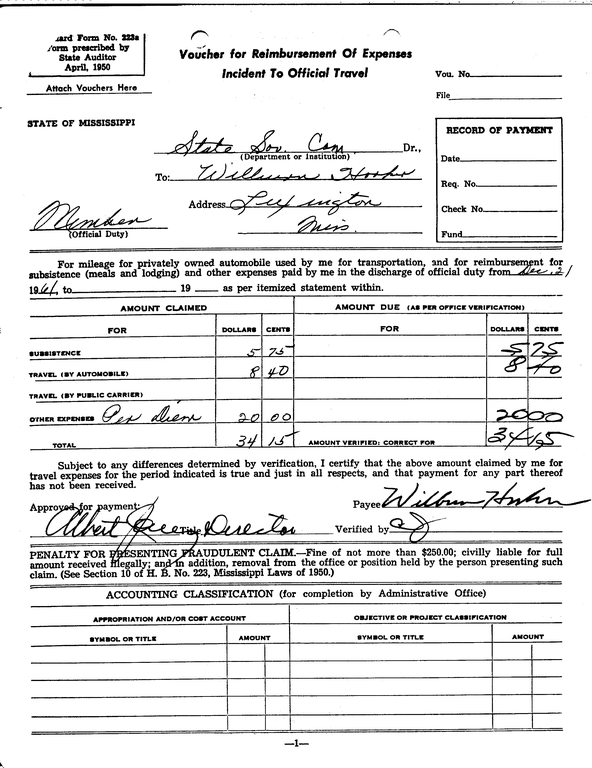 ard Form No. 223a
orm prescribed by
State Auditor
April, 1950
Attach Vouchers Here
Voucher for Reimbursement Of Expenses
Incident To Official Travel
Vou. No.
File
STATE OF MISSISSIPPI
State Sov. Com Dr.,
(Department or Institution)
To: Wilburn Hooker
Address Lexington
Miss.
Member
(Official Duty)
RECORD OF PAYMENT
Date
Req. No.
Check No.
Fund
For mileage for privately owned automobile used by me for transportation, and for reimbursement for
subsistence (meals and lodging) and other expenses paid by me in the discharge of official duty from Dec. 21
1961, to 19 as per itemized statement within.
AMOUNT CLAIMED AMOUNT DUE (AS PER OFFICE VERIFICATION)
FOR DOLLARS CENTS FOR DOLLARS CENTS
SUBSISTENCE 5 75 5 75
TRAVEL (BY AUTOMOBILE) 8 40 8 40
TRAVEL (BY PUBLIC CARRIER)
OTHER EXPENSES Per Diem 20 00 20 00
TOTAL 34 15 AMOUNT VERIFIED: CORRECT FOR 34 15
Subject to any differences determined by verification, I certify that the above amount claimed by me for
travel expenses for the period indicated is true and just in all respects, and that payment for any part thereof
has not been received.
Approved for payment: Payee Wilburn Hooker
Albert Title Director Verified by
PENALTY FOR PRESENTING FRAUDULENT CLAIM.—Fine of not more than $250.00; civilly liable for full
amount received illegally; and in addition, removal from the office or position held by the person presenting such
claim. (See Section 10 of H. B. No. 223, Mississippi Laws of 1950.)
ACCOUNTING CLASSIFICATION (for completion by Administrative Office)
APPROPRIATION AND/OR COST ACCOUNT OBJECTIVE OR PROJECT CLASSIFICATION
SYMBOL OR TITLE AMOUNT SYMBOL OR TITLE AMOUNT
—1—